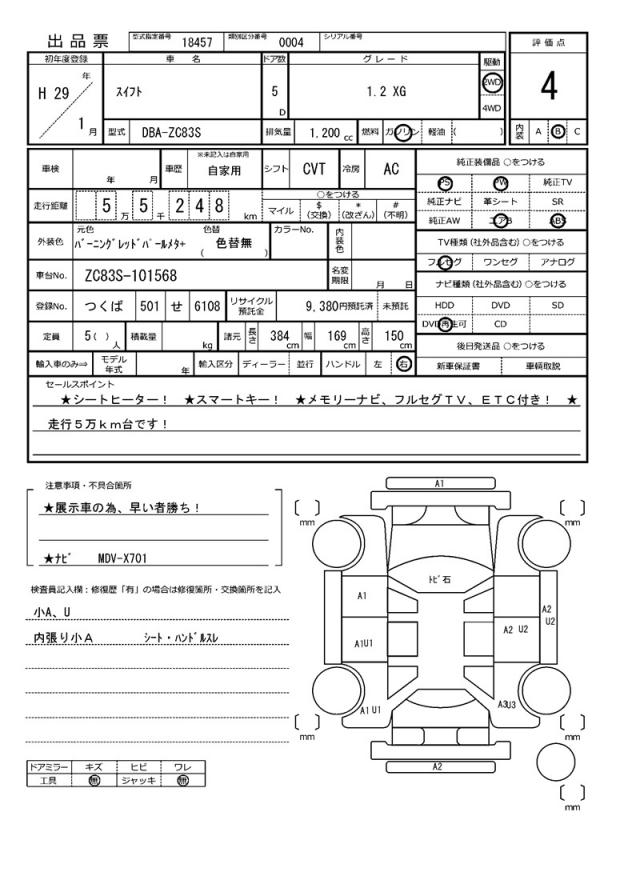 出品票 型式指定番号 18457 類別区分番号 0004 シリアル番号
評価点
4
内装 A B C
初年度登録 車名 ドア数 グレード 駆動
H 29 年 1 月 スイフト 5 D 1.2 XG 2WD 4WD
型式 DBA-ZC83S 排気量 1.200 cc 燃料 ガソリン 軽油 ( )
車検 年 月 車歴 ※未記入は自家用 自家用 シフト CVT 冷房 AC
走行距離 5 万 5 千 2 4 8 km ○をつける
マイル $(交換) *(改ざん) #(不明)
外装色 元色 バーニングレッドパールメタ+ 色替 ( 色替無 ) カラーNo. 内装色
車台No. ZC83S-101568 名変期限 月 日
登録No. つくば 501 せ 6108 リサイクル預託金 9,380円預託済 未預託
定員 5( )人 積載量 kg 諸元 長さ 384 cm 幅 169 cm 高さ 150 cm
輸入車のみ⇒ モデル年式 年 輸入区分 ディーラー 並行 ハンドル 左 右
純正装備品 ○をつける
PS PW 純正TV
純正ナビ 革シート SR
純正AW エアB ABS
TV種類(社外品含む)○をつける
フルセグ ワンセグ アナログ
ナビ種類(社外品含む)○をつける
HDD DVD SD
DVD再生可 CD
後日発送品 ○をつける
新車保証書 車輌取説
セールスポイント
★シートヒーター! ★スマートキー! ★メモリーナビ、フルセグTV、ETC付き! ★
走行5万km台です!
注意事項・不具合箇所
★展示車の為、早い者勝ち!
★ナビ MDV-X701
検査員記入欄:修復歴「有」の場合は修復箇所・交換箇所を記入
小A、U
内張り小A シート・ハンドルスレ
ドアミラー キズ ヒビ ワレ
工具 無 ジャッキ 無
A1
mm
mm
トビ石
A1
A2
U2
A1U1
A2 U2
A1 U1
A3U3
mm
mm
A2
mm